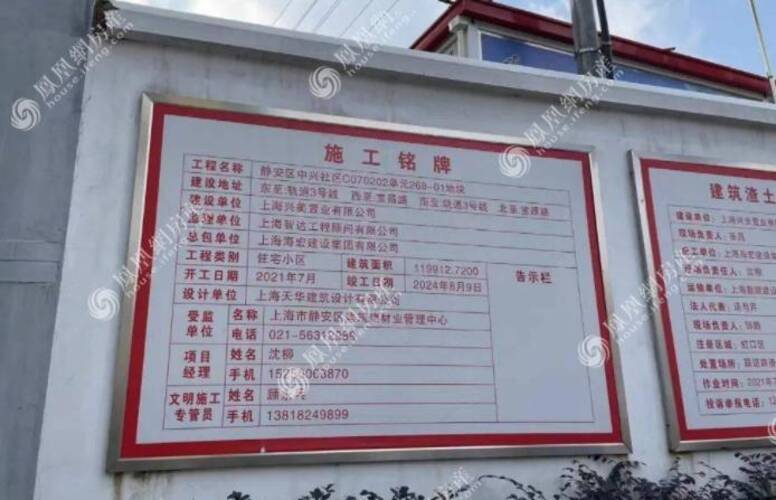 施工铭牌
工程名称 静安区中兴社区C070202单元268-01地块
建设地址 东至:轨道3号线 西至:宝昌路 南至:轨道3号线 北至:宝源路
建设单位 上海兴美置业有限公司
监理单位 上海智达工程顾问有限公司
总包单位 上海海宏建设集团有限公司
工程类别 住宅小区 建筑面积 119912.7200 告示栏
开工日期 2021年7月 竣工日期 2024年8月9日
设计单位 上海天华建筑设计有限公司
受监单位 名称 上海市静安区建筑建材业管理中心
电话 021-563
项目经理 姓名 沈柳
手机 870
文明施工专管员 姓名 顾
手机 13818249899
建筑渣土
建设单位:上海兴美置业
现场负责人:
施工单位:上海海宏建设
现场负责人:沈柳
运输单位:上海
法人代表:
现场负责人:
注册区域:虹口区
处置场所:
作业时间:2021年7
投诉举报电话:12
凤凰网房产
house.ifeng.com